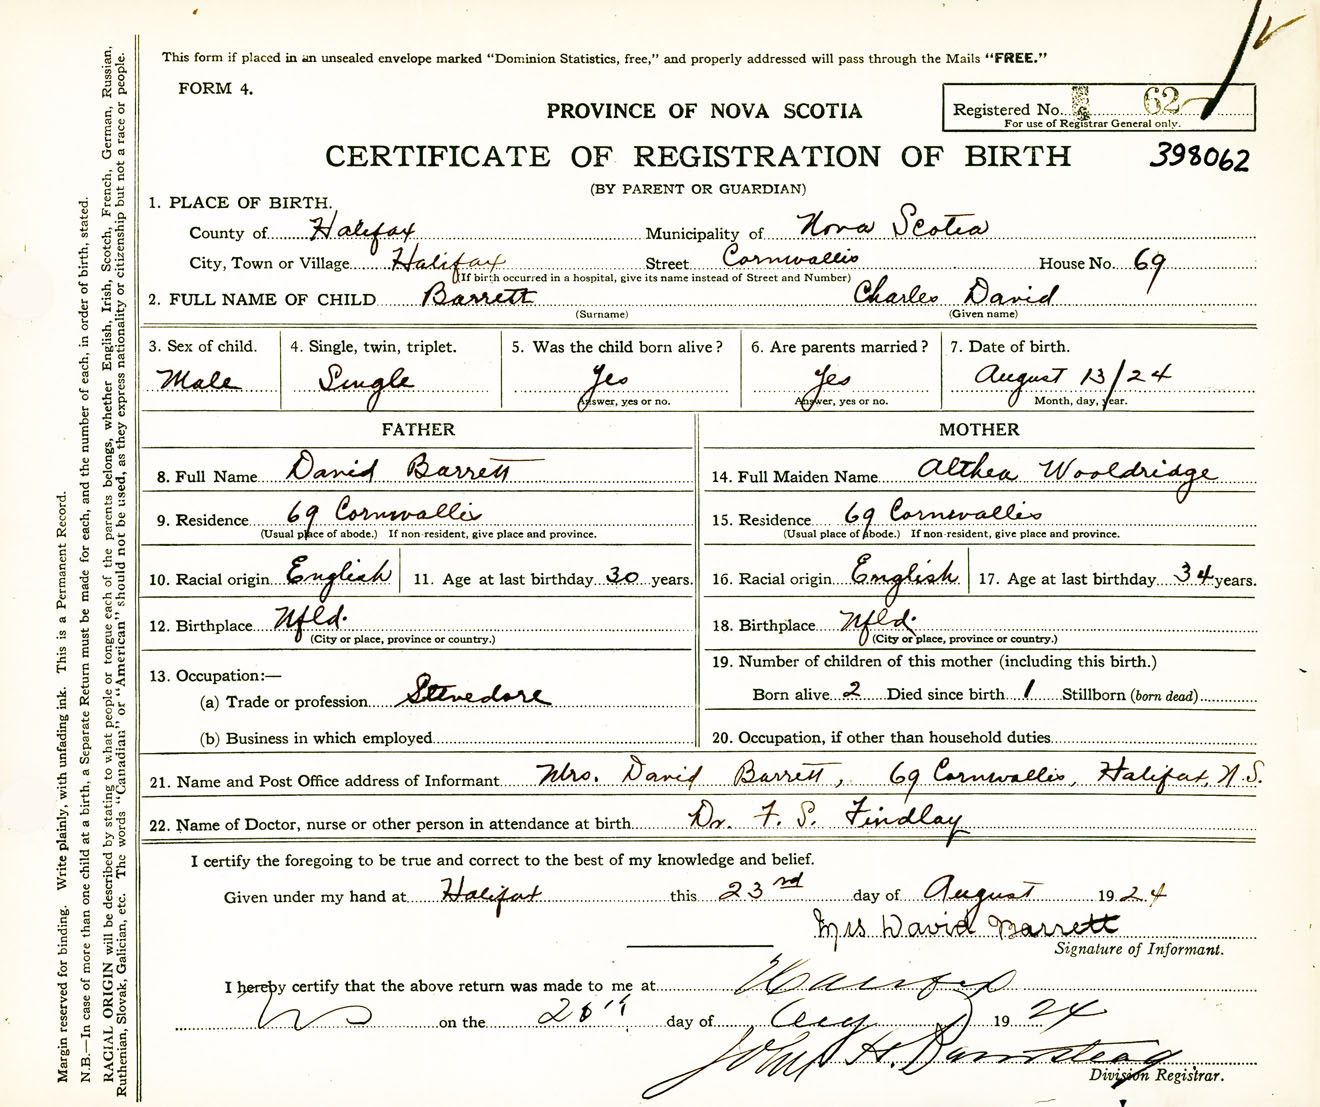 This form if placed in an unsealed envelope marked “Dominion Statistics, free,” and properly addressed will pass through the Mails “FREE.”
FORM 4.
Registered No. 62
For use of Registrar General only.
PROVINCE OF NOVA SCOTIA
CERTIFICATE OF REGISTRATION OF BIRTH 398062
(BY PARENT OR GUARDIAN)
1. PLACE OF BIRTH.
County of Halifax Municipality of Nova Scotia
City, Town or Village Halifax Street Cornwallis House No. 69
(If birth occurred in a hospital, give its name instead of Street and Number)
2. FULL NAME OF CHILD Barrett Charles David
(Surname) (Given name)
3. Sex of child. 4. Single, twin, triplet. 5. Was the child born alive? 6. Are parents married? 7. Date of birth.
Male Single Yes Yes August 13/24
Answer, yes or no. Answer, yes or no. Month, day, year.
FATHER MOTHER
8. Full Name David Barrett 14. Full Maiden Name Althea Wooldridge
9. Residence 69 Cornwallis 15. Residence 69 Cornwallis
(Usual place of abode.) If non-resident, give place and province. (Usual place of abode.) If non-resident, give place and province.
10. Racial origin English 11. Age at last birthday 30 years. 16. Racial origin English 17. Age at last birthday 34 years.
12. Birthplace Nfld. 18. Birthplace Nfld.
(City or place, province or country.) (City or place, province or country.)
13. Occupation:— 19. Number of children of this mother (including this birth.)
(a) Trade or profession Stevedore Born alive 2 Died since birth 1 Stillborn (born dead)
(b) Business in which employed 20. Occupation, if other than household duties
21. Name and Post Office address of Informant Mrs. David Barrett, 69 Cornwallis, Halifax, N.S.
22. Name of Doctor, nurse or other person in attendance at birth Dr. F. S. Findlay
I certify the foregoing to be true and correct to the best of my knowledge and belief.
Given under my hand at Halifax this 23rd day of August 1924
Mrs David Barrett
Signature of Informant.
I hereby certify that the above return was made to me at Halifax
NS on the day of Aug 1924
John H. Barnstead
Division Registrar.
Margin reserved for binding. Write plainly, with unfading ink. This is a Permanent Record.
N.B.—In case of more than one child at a birth, a Separate Return must be made for each, and the number of each, in order of birth, stated.
RACIAL ORIGIN will be described by stating to what people or tongue each of the parents belongs, whether English, Irish, Scotch, French, German, Russian,
Ruthenian, Slovak, Galician, etc. The words “Canadian” or “American” should not be used, as they express nationality or citizenship but not a race or people.